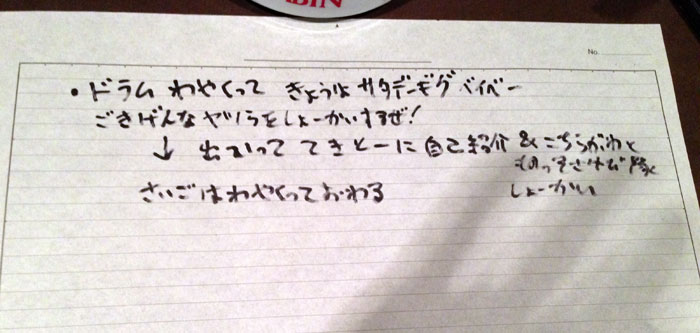 ABIN
No.
・ドラム わやくって きょうは サタデーギグ ベイベー
ごきげんなヤツラをしょーかいするぜ!
↓ 出かって てきとーに 自己紹介 & こちらがわと
しょーかい
さいごは わやくって おわる